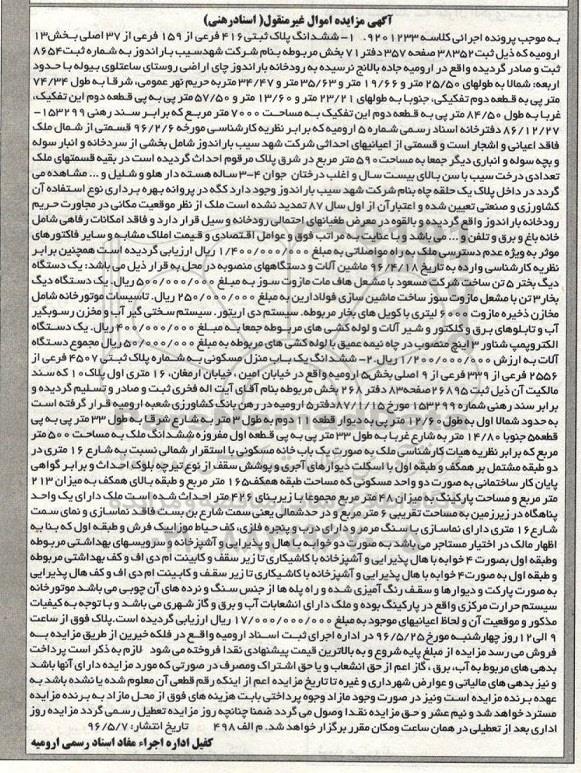 آگهی مزایده اموال غیرمنقول( اسنادرهنی)
به موجب پرونده اجرائی کلاسه ۹۲۰۱۲۳۳. ۱- ششدانگ پلاک ثبتی ۴۱۶ فرعی از ۱۵۹ فرعی از ۳۷ اصلی بخش۱۳
ارومیه که ذیل ثبت ۳۸۳۵۲ صفحه ۳۵۷ دفتر ۷۱ بخش مربوطه بنام شرکت شهد سیب باراندوز به شماره ثبت ۸۶۵۴
ثبت و صادر گردیده واقع در ارومیه جاده بالانج نرسیده به رودخانه باراندوز چای اراضی روستای ساعتلوی بیوله با حدود
اربعه: شمالا به طولهای ۲۵/۵۰ متر و ۱۹/۶۶ متر و ۳۵/۶۳ متر و ۳۴/۴۷ متربه حریم نهر عمومی، شرقا به طول ۷۴/۳۴
متر پی به قطعه دوم تفکیکی، جنوبا به طولهای ۲۳/۲۱ متر و ۱۳/۶۰ متر و ۵۷/۵۰ متر پی به پی قطعه دوم این تفکیک،
غربا به طول ۸۴/۵۰ متر پی به قطعه دوم این تفکیک به مساحت ۷۰۰۰ متر مربع که برابر سند رهنی ۱۵۳۲۹۹-
۸۶/۱۲/۲۷ دفترخانه اسناد رسمی شماره ۵ ارومیه که برابر نظریه کارشناسی مورخه ۹۶/۲/۶ قسمتی از شمال ملک
فاقد اعیانی و اشجار است و قسمتی از اعیانیهای احداثی شرکت شهد سیب باراندوز شامل بخشی از سردخانه و انبار سوله
و بچه سوله و انباری دیگر جمعا به مساحت ۵۹۰ متر مربع در شرق پلاک مرقوم احداث گردیده است در بقیه قسمتهای ملک
تعدادی درخت سیب با سن بالای بیست سال و اغلب درختان جوان ۴-۳ ساله هسته دار هلو و شلیل و ... مشاهده می
گردد در داخل پلاک یک حلقه چاه بنام شرکت شهد سیب باراندوز وجود دارد که در پروانه بهره برداری نوع استفاده آن
کشاورزی و صنعتی تعیین شده و اعتبار آن از اول سال ۸۷ تمدید نشده است ملک از نظر موقعیت مکانی در مجاورت حریم
رودخانه باراندوز واقع گردیده و بالقوه در معرض طغیانهای احتمالی رودخانه و سیل قرار دارد و فاقد امکانات رفاهی شامل
خانه باغ و برق و تلفن و ... می باشد و با عنایت به مراتب فوق و عوامل اقتصادی و قیمت املاک مشابه و سایر فاکتورهای
موثر به ویژه عدم دسترسی ملک به راه مواصلاتی به مبلغ ۱/۴۰۰/۰۰۰/۰۰۰ ریال ارزیابی گردیده است همچنین برابر
نظریه کارشناسی وارده به تاریخ ۹۶/۴/۱۸ ماشین آلات و دستگاههای منصوبه در محل به قرار ذیل می باشد: یک دستگاه
دیگ بخار ۵ تن ساخت شرکت مسعود با مشعل هاف مات مازوت سوز به مبلغ ۵۰۰/۰۰۰/۰۰۰ ریال. یک دستگاه دیگ
بخار ۳ تن با مشعل مازوت سوز ساخت ماشین سازی فولادارین به مبلغ ۲۵۰/۰۰۰/۰۰۰ ریال. تاسیسات موتورخانه شامل
مخازن ذخیره مازوت ۶۰۰۰۰ لیتری با کویل های بخار مربوطه، سیستم دی اریتور، سیستم سختی گیر آب و مخزن رسوبگیر
آب و تابلوهای برق و کلکتور و شیر آلات و لوله کشی های مربوطه جمعا به مبلغ ۴۰۰/۰۰۰/۰۰۰ ریال. یک دستگاه
الکتروپمپ شناور ۳ اینچ منصوب در چاه نیمه عمیق با لوله کشی های مربوطه به مبلغ ۵۰/۰۰۰/۰۰۰ ریال مجموع دستگاه
آلات به ارزش ۱/۲۰۰/۰۰۰/۰۰۰ ریال. ۲- ششدانگ یک باب منزل مسکونی به شماره پلاک ثبتی ۴۵۰۷ فرعی از
۲۵۵۶ فرعی از ۳۳۹ فرعی از ۹ اصلی بخش ۵ ارومیه واقع در خیابان امین، خیابان ارمغان، ۱۶ متری اول پلاک ۱۰ که سند
مالکیت آن ذیل ثبت ۲۶۸۹۵ صفحه ۸۳ دفتر ۲۶۸ بخش مربوطه بنام آقای آیت اله فخری ثبت و صادر و تسلیم گردیده و
برابر سند رهنی شماره ۱۵۳۲۹۹ مورخ ۸۷/۰۱/۱۵ دفتر ۵ ارومیه در رهن بانک کشاورزی شعبه ارومیه قرار گرفته است
به حدود شمالا اول به طول ۱۲/۶۰ متر پی به دیوار قطعه ۱۱ دوم به طول ۳ متر به شارع شرقا به طول ۳۳ متر پی به پی
قطعه ۵ جنوبا ۱۴/۸۰ متر به شارع غربا به طول ۳۳ متر پی به پی قطعه اول مفروزه ششدانگ ملک به مساحت ۵۰۰ متر
مربع که برابر نظریه هیات کارشناسی ملک به صورت یک باب خانه مسکونی با استقرار شمالی نسبت به شارع ۱۶ متری در
دو طبقه مشتمل بر همکف و طبقه اول با اسکلت دیوارهای آجری و پوشش سقف از نوع تیرچه بلوک احداث و برابر گواهی
پایان کار ساختمانی به صورت دو واحد مسکونی که مساحت طبقه همکف ۱۶۵ متر مربع و طبقه بالای همکف به میزان ۲۱۳
متر مربع و مساحت پارکینگ به میزان ۴۸ متر مربع مجموعا با زیربنای ۴۲۶ متر احداث شده است ملک دارای یک واحد
پناهگاه در زیرزمین به مساحت تقریبی ۶ متر مربع و در حدشمالی یعنی سمت شارع بن بست فاقد نماسازی و نمای سمت
شارع ۱۶ متری دارای نماسازی با سنگ مرمر و دارای درب و پنجره فلزی، کف حیاط موزاییک فرش و طبقه اول که بنا به
اظهار مالک در اختیار مستاجر می باشد به صورت دو خوابه با هال و پذیرایی و آشپزخانه و سرویسهای بهداشتی مربوطه
وطبقه اول بصورت ۴ خوابه با هال پذیرایی و آشپزخانه با کاشیکاری تا زیر سقف و کابینت ام دی اف و کف بهداشتی مربوطه
و طبقه اول به صورت ۴ خوابه با هال پذیرایی و آشپزخانه با کاشیکاری تا زیر سقف و کابینت ام دی اف و کف هال پذیرایی
به صورت پارکت و دیوارها و سقف رنگ آمیزی شده و راه پله ها از جنس سنگ و نرده های آن چوبی می باشد موتورخانه
سیستم حرارت مرکزی واقع در پارکینگ بوده و ملک دارای انشعابات آب و برق و گاز شهری می باشد و با توجه به کیفیات
مذکور و موقعیت آن و لحاظ اعیانیهای موجود به مبلغ ۱۷/۰۰۰/۰۰۰/۰۰۰ ریال ارزیابی گردیده است. پلاک فوق از ساعت
۹ الی ۱۲ روز چهارشنبه مورخ ۹۶/۵/۲۵ در اداره اجرای ثبت اسناد ارومیه واقع در فلکه خیرین از طریق مزایده به
فروش می رسد مزایده از مبلغ پایه شروع و به بالاترین قیمت پیشنهادی نقدا فروخته می شود لازم به ذکر است پرداخت
بدهی های مربوط به آب، برق، گاز اعم از حق انشعاب و یا حق اشتراک ومصرف در صورتی که مورد مزایده دارای آنها باشد
و نیز بدهی های مالیاتی و عوارض شهرداری و غیره تا تاریخ مزایده اعم از اینکه رقم قطعی آن معلوم شده یا نشده باشد به
عهده برنده مزایده است ونیز در صورت وجود مازاد وجوه پرداختی بابت هزینه های فوق از محل مازاد به برنده مزایده
مسترد خواهد شد و نیم عشر و حق مزایده نقدا وصول می گردد ضمنا چنانچه روز مزایده تعطیل رسمی گردد مزایده روز
اداری بعد از تعطیلی در همان ساعت ومکان مقرر برگزار خواهد شد. م الف ۴۹۸ تاریخ انتشار: ۹۶/۵/۷
کفیل اداره اجراء مفاد اسناد رسمی ارومیه